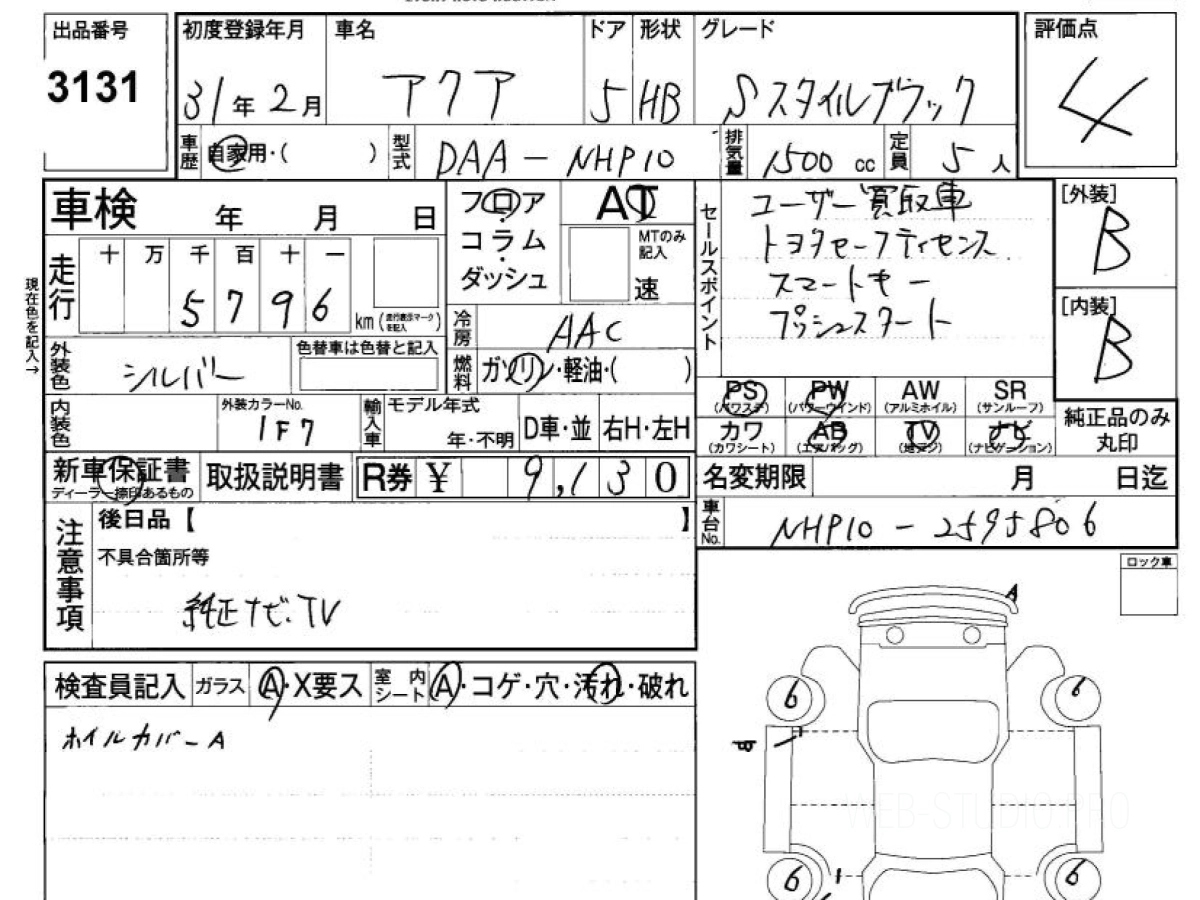 出品番号
3131
初度登録年月
31年2月
車名
アクア
ドア
5
形状
HB
グレード
Sスタイルブラック
評価点
4
車歴
自家用・( )
型式
DAA-NHP10
排気量
1500 cc
定員
5人
車検 年 月 日
フロア
コラム
ダッシュ
AT
MTのみ記入
速
セールスポイント
ユーザー買取車
トヨタセーフティセンス
スマートキー
プッシュスタート
[外装]
B
[内装]
B
現在色を記入→
走行
十 万 千 百 十 一
5 7 9 6
km (走行表示マークを記入)
冷房
AAC
燃料
ガソリン・軽油・( )
外装色
シルバー
色替車は色替と記入
内装色
外装カラーNo.
1F7
輸入車
モデル年式
年・不明
D車・並
右H・左H
PS
(パワステ)
PW
(パワーウインド)
AW
(アルミホイル)
SR
(サンルーフ)
カワ
(カワシート)
AB
(エアバッグ)
TV
ナビ
(ナビゲーション)
純正品のみ
丸印
新車保証書
ディーラー捺印あるもの
取扱説明書
R券 ¥ 9,130
名変期限 月 日迄
車台No.
NHP10-2595806
注意事項
後日品【 】
不具合箇所等
純正ナビ.TV
ロック車
検査員記入
ガラス
A・X要ス
室内シート
A・コゲ・穴・汚れ・破れ
ホイルカバーA
A
6
6
6
6
WEB-STUDIO.PRO